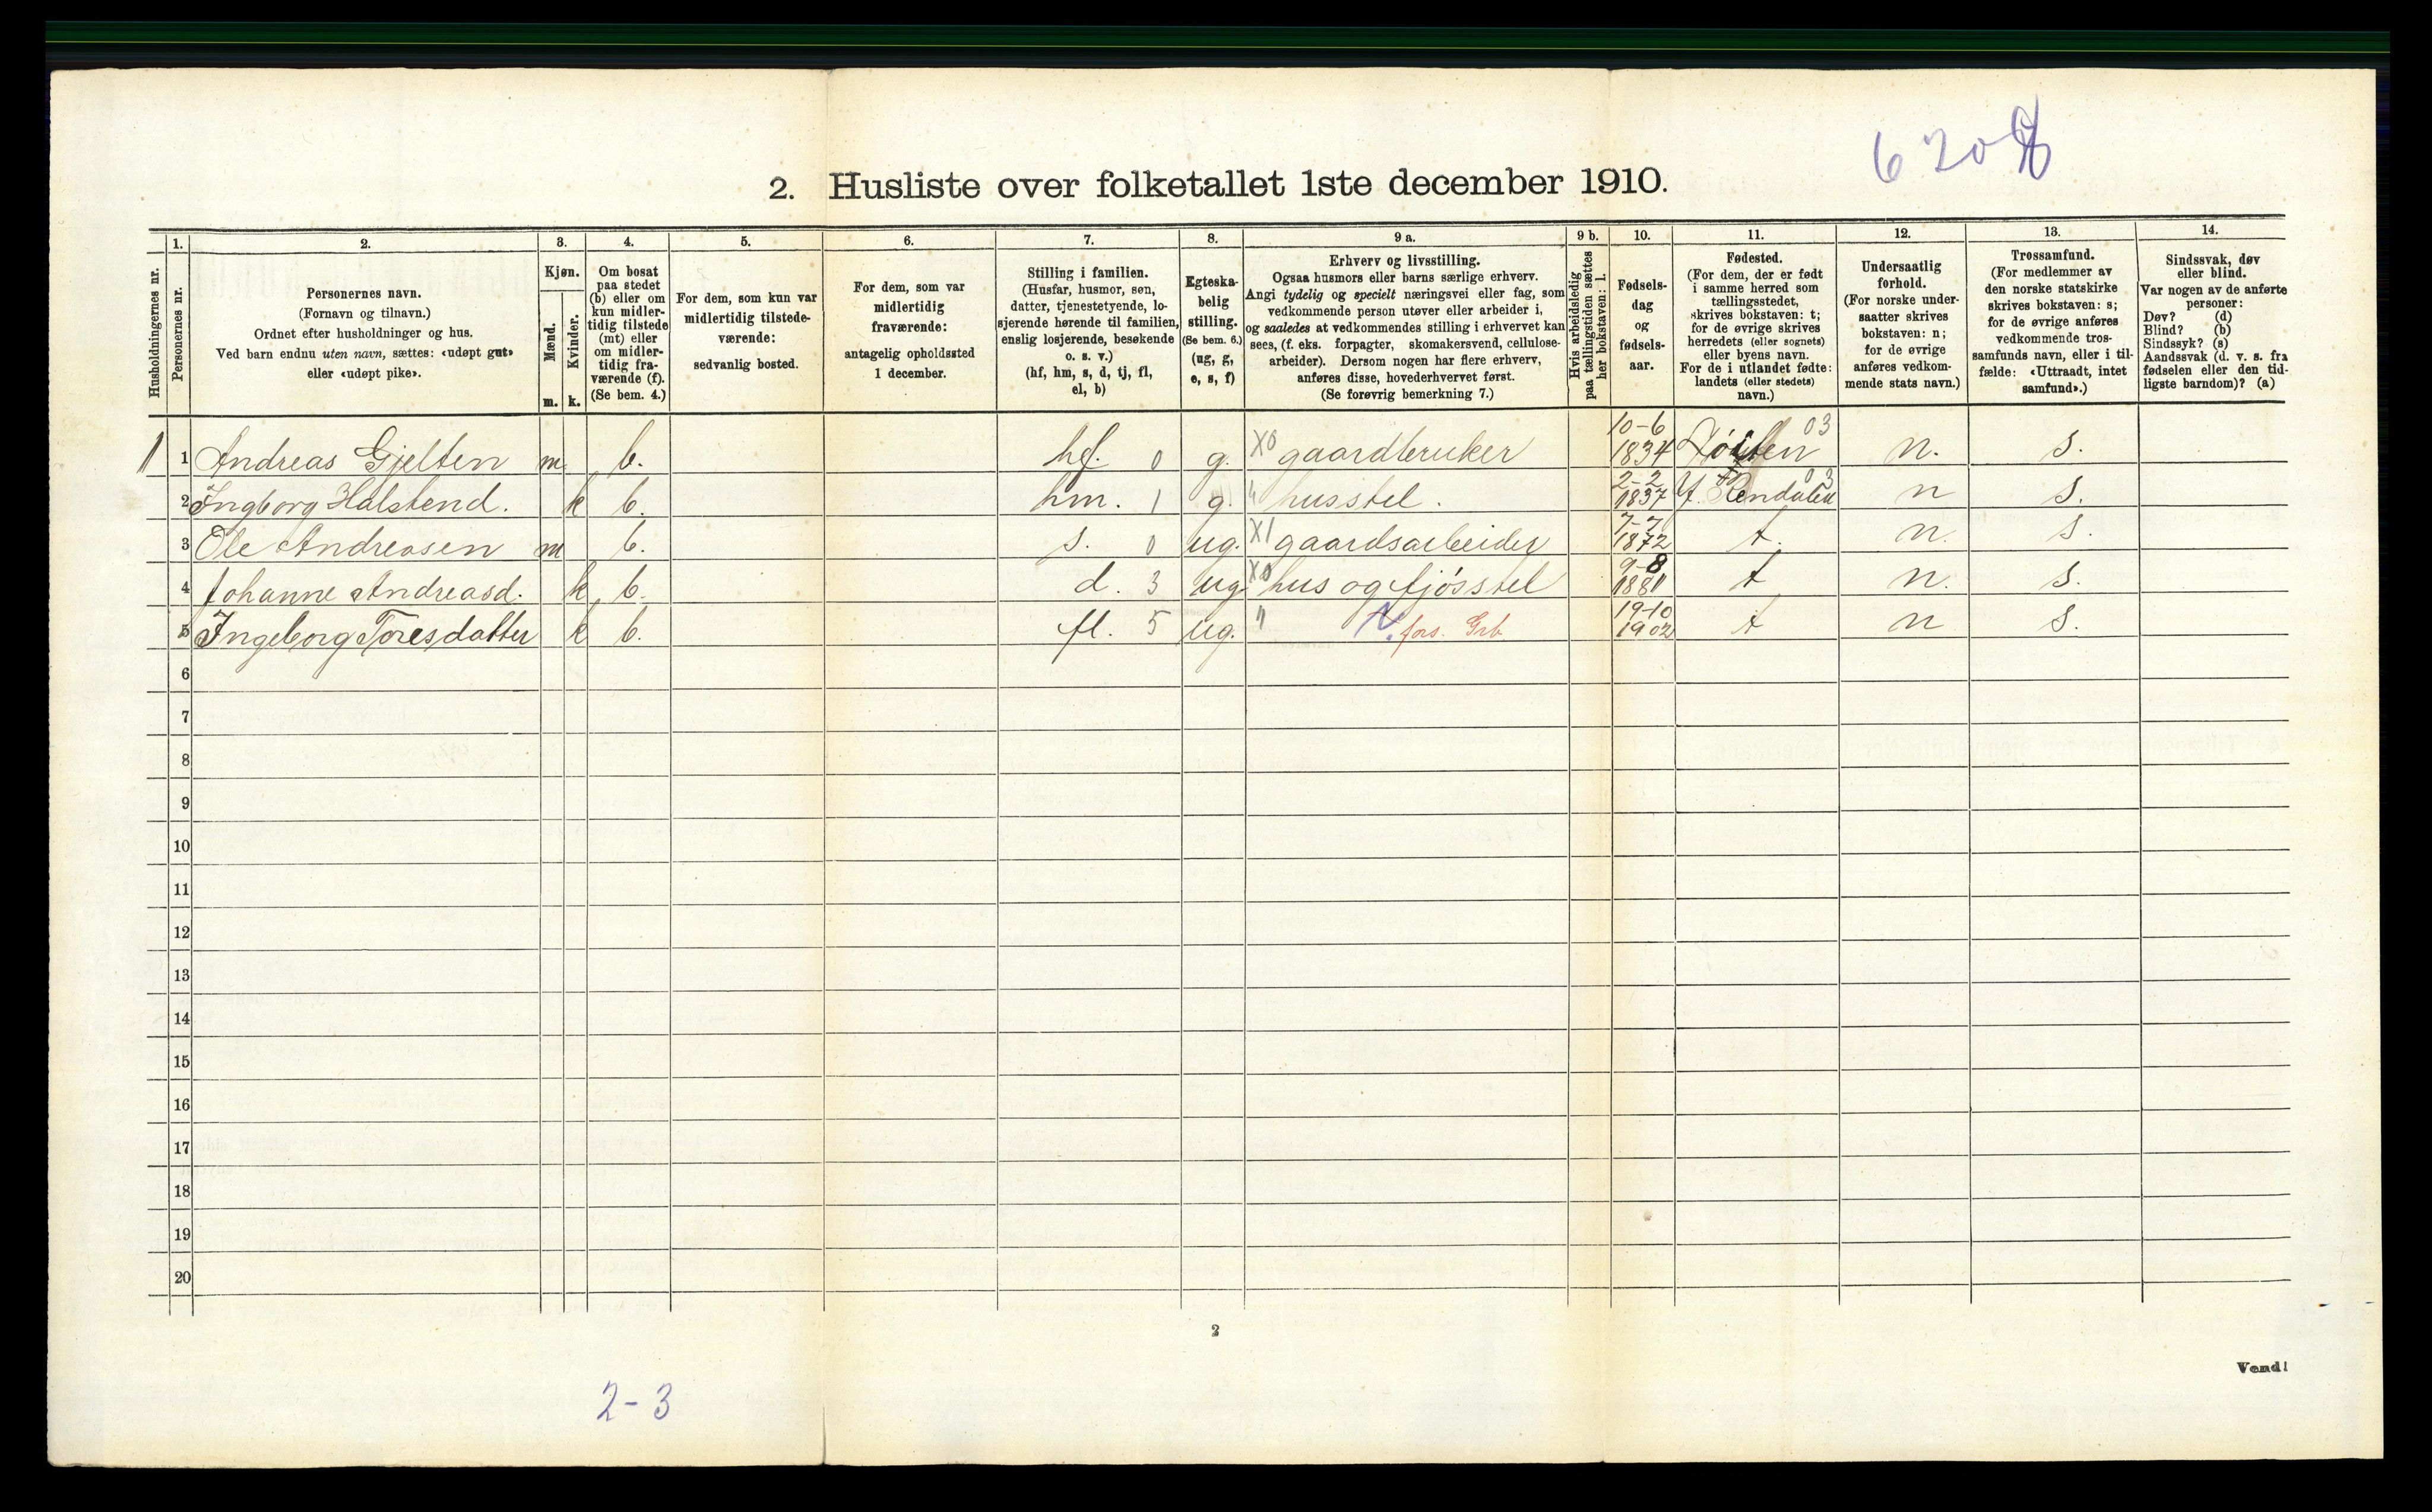 620
2. Husliste over folketallet 1ste december 1910.
Husholdningernes nr.
1.
Personernes nr.
2.
Personernes navn.
(Fornavn og tilnavn.)
Ordnet efter husholdninger og hus.
Ved barn endnu uten navn, sættes: «udøpt gut»
eller «udøpt pike».
3.
Kjøn.
Mænd.
m.
Kvinder.
k.
4.
Om bosat
paa stedet
(b) eller om
kun midler-
tidig tilstede
(mt) eller
om midler-
tidig fra-
værende (f).
(Se bem. 4.)
5.
For dem, som kun var
midlertidig tilstede-
værende:
sedvanlig bosted.
6.
For dem, som var
midlertidig
fraværende:
antagelig opholdssted
1 december.
7.
Stilling i familien.
(Husfar, husmor, søn,
datter, tjenestetyende, lo-
sjerende hørende til familien,
enslig losjerende, besøkende
o. s. v.)
(hf, hm, s, d, tj, fl,
el, b)
8.
Egteska-
belig
stilling.
(Se bem. 6.)
(ug, g,
e, s, f)
9 a.
Erhverv og livsstilling.
Ogsaa husmors eller barns særlige erhverv.
Angi tydelig og specielt næringsvei eller fag, som
vedkommende person utøver eller arbeider i,
og saaledes at vedkommendes stilling i erhvervet kan
sees, (f. eks. forpagter, skomakersvend, cellulose-
arbeider). Dersom nogen har flere erhverv,
anføres disse, hovederhvervet først.
(Se forøvrig bemerkning 7.)
9 b.
Hvis arbeidsledig
paa tællingstiden sættes
her bokstaven: l.
10.
Fødsels-
dag
og
fødsels-
aar.
11.
Fødested.
(For dem, der er født
i samme herred som
tællingsstedet,
skrives bokstaven: t;
for de øvrige skrives
herredets (eller sognets)
eller byens navn.
For de i utlandet fødte:
landets (eller stedets)
navn.)
12.
Undersaatlig
forhold.
(For norske under-
saatter skrives
bokstaven: n;
for de øvrige
anføres vedkom-
mende stats navn.)
13.
Trossamfund.
(For medlemmer av
den norske statskirke
skrives bokstaven: s;
for de øvrige anføres
vedkommende tros-
samfunds navn, eller i til-
fælde: «Uttraadt, intet
samfund».)
14.
Sindssvak, døv
eller blind.
Var nogen av de anførte
personer:
Døv? (d)
Blind? (b)
Sindssyk? (s)
Aandssvak (d. v. s. fra
fødselen eller den tid-
ligste barndom)? (a)
1 1 Andreas Gjelten m b. hf. 0 g. X0 gaardbruker 10-6 1834 03 n. s.
2 Ingborg Halstend. k b. hm. 1 g. " husstel. 2-2 1837 Y. Rendalen 03 n s.
3 Ole Andreasen m b. s. 0 ug. X1 gaardsarbeider 7-7 1872 t. n. s.
4 Johanne Andreasd. k b. d. 3 ug X0 hus og fjósstel 9-8 1881 t n. s.
5 Ingeborg Toresdatter k b. fl. 5 ug. " fors. Grb 19-10 1902 t n s.
6
7
8
9
10
11
12
13
14
15
16
17
18
19
20
2
Vend!
2-3